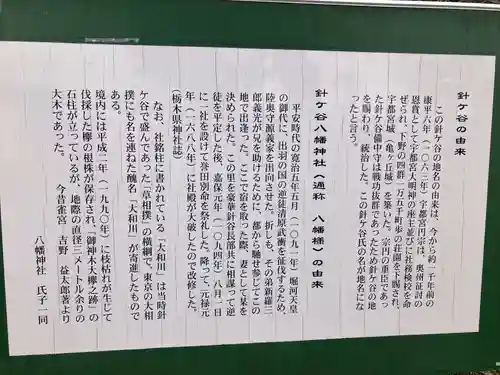 針ケ谷の由来
この針ケ谷の地名の由来は、今から約一千年前の
康平六年（一〇六三年）宇都宮円宗は、奥州征討の
恩賞として宇都宮大明神の座主並びに社務検校を命
ぜられ、下野の四群一万五千町歩の荘園を下賜され、
宇都宮城（亀ヶ丘城）を築いた。宗円の重臣であっ
た針ケ谷備中守は戦功抜群であったため針ケ谷の地
を賜わり、統治した。この針ケ谷氏の名が地名になっ
たと言う。
針ケ谷八幡神社（通称 八幡様）の由来
平安時代の寛治五年五月（一〇九一年）堀河天皇
の御代に、出羽の国の逆徒清原武衡を征伐するため、
陸奥守源義家を出向させた。折しも、その弟新羅三
郎義光が兄を助けるために、都から馳せ参じてこの
地で出逢った。ここで宿を取った際、妻として某を
決められた。この里を豪華針谷長部共に相謀って逆
徒を平定した後、嘉保元年（一〇九四年）八月一日
に一社を設けて誉田別命を祭礼した。降って、元禄元
年（一六八八年）に社殿が大破したので改修した。
（栃木県神社誌）
なお、社銘柱に書かれている「大和川」は当時針
ケ谷で盛んであった「草相撲」の横綱で、東京の大相
撲にも名を連ねた醜名「大和川」が寄進したもので
ある。
境内には平成二年（一九九〇年）に枝枯れが生じて
伐採した欅の根株が保存され、「御神木大欅之跡」の
石柱が立っているが、地際の直径三メートル余りの
大木であった。
今昔雀宮 吉野 益太郎著より
八幡神社 氏子一同